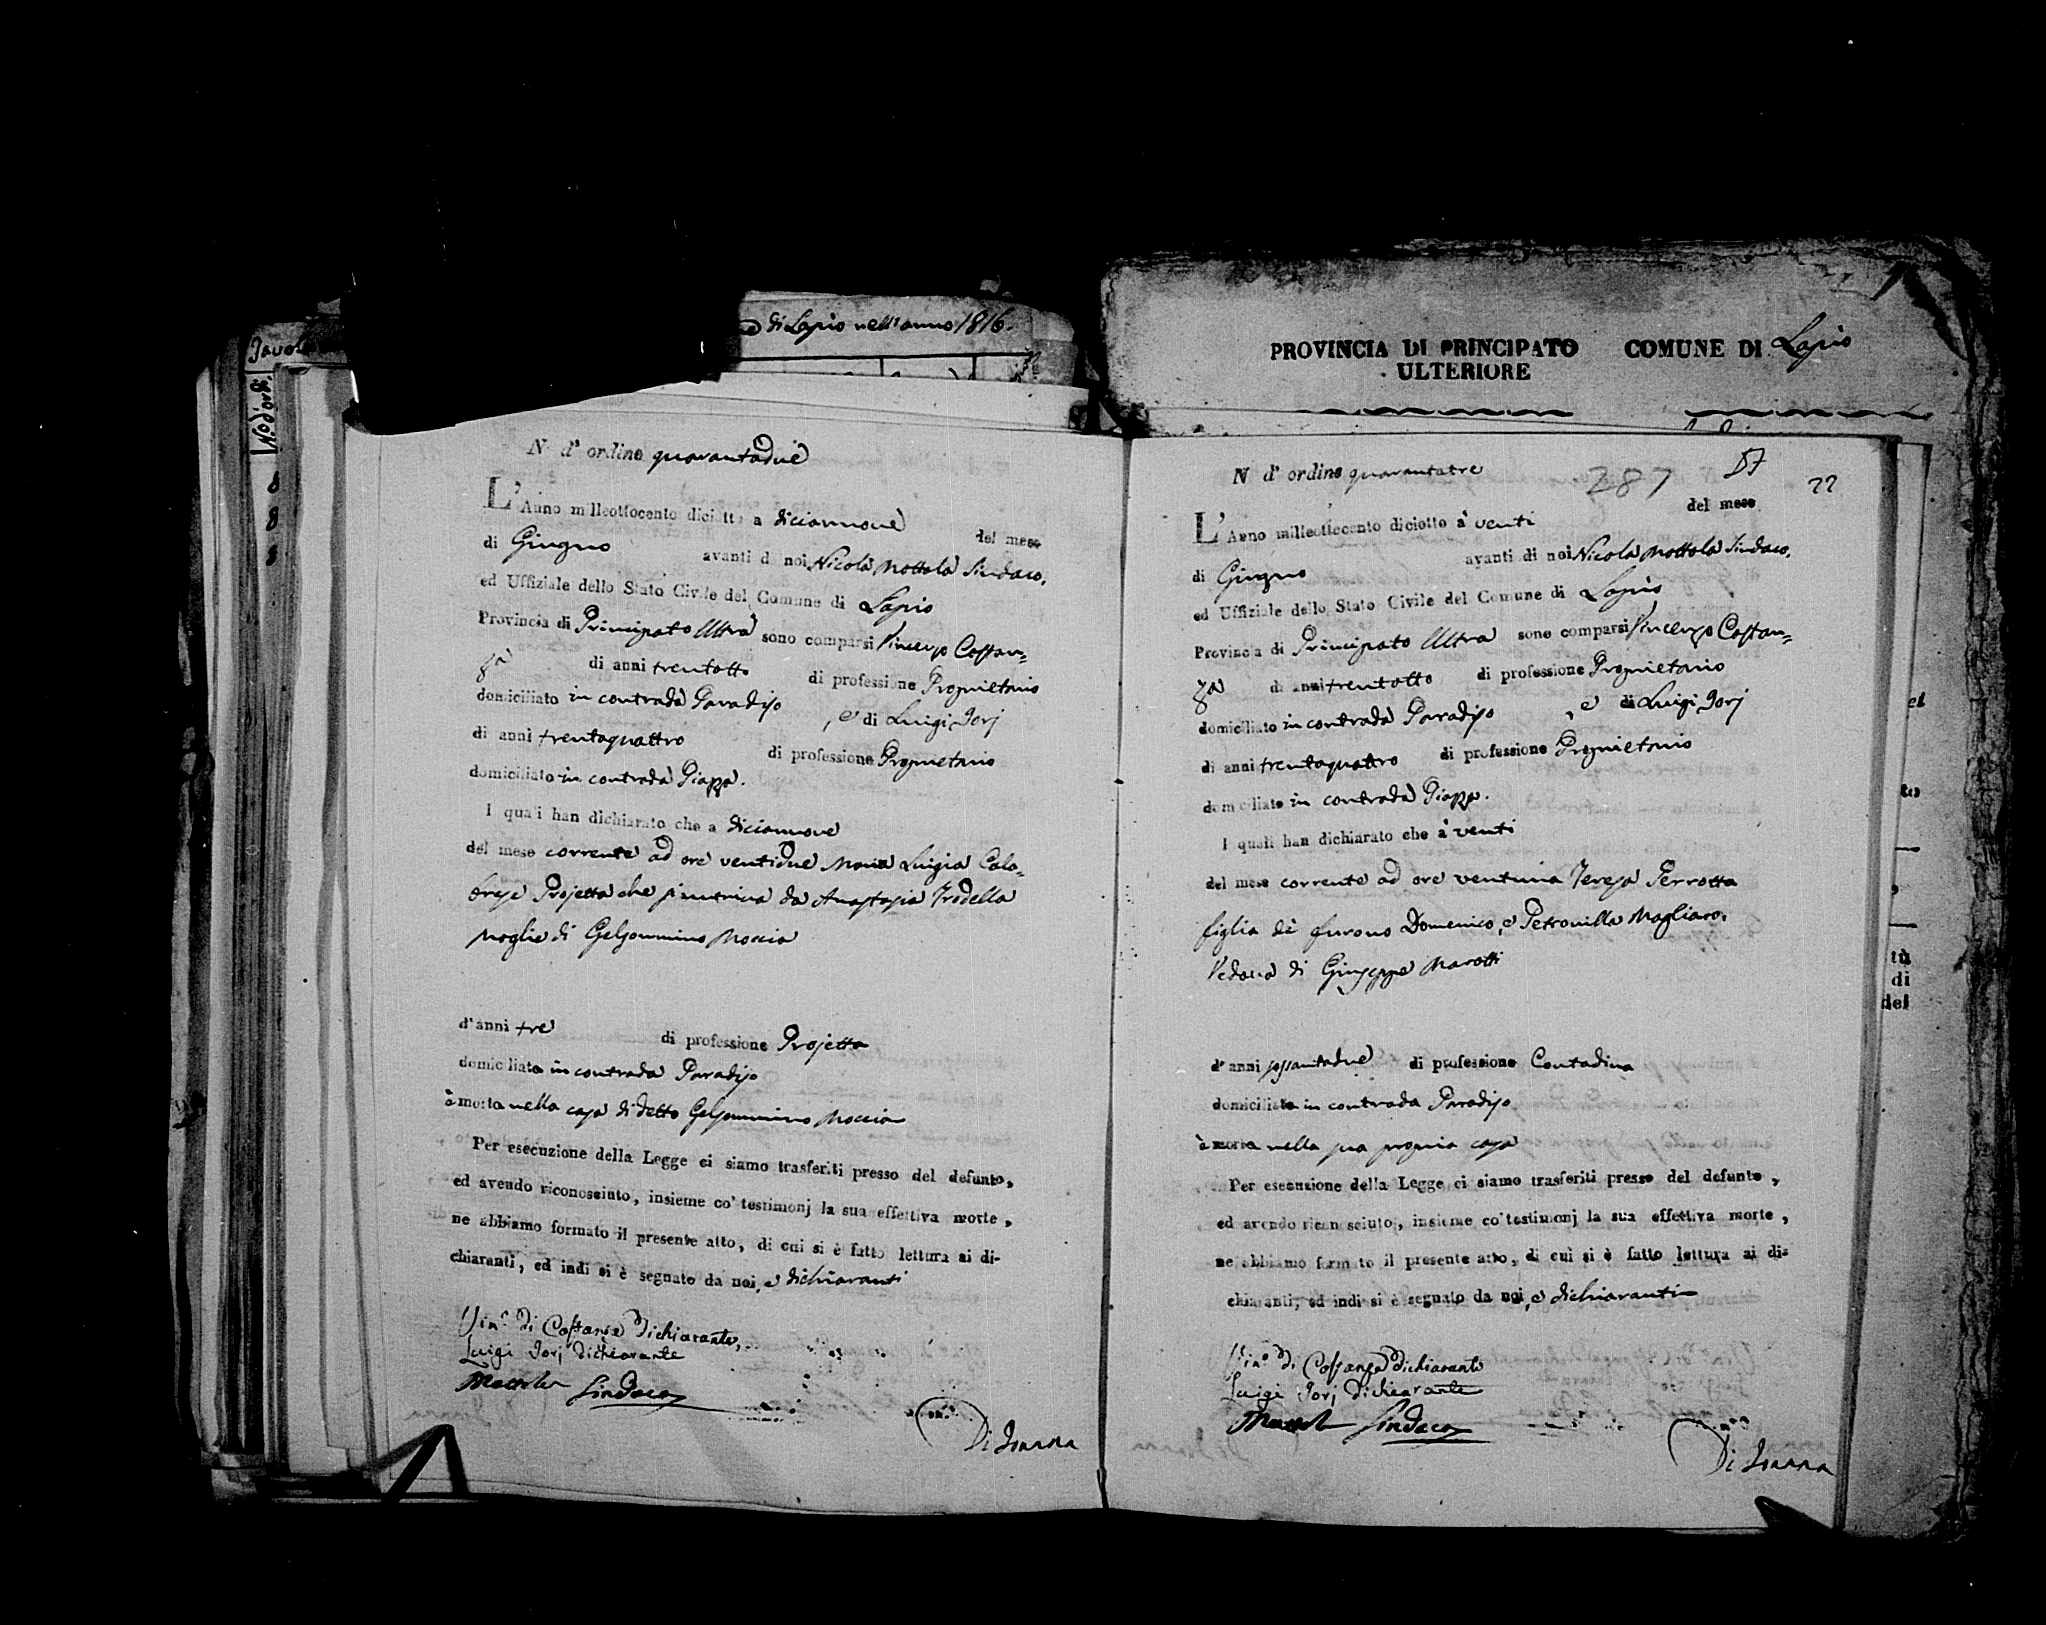 di Lapio nell'anno 1816.
No. d'ord.
PROVINCIA DI PRINCIPATO ULTERIORE
COMUNE DI Lapio
N d' ordine quarantadue
L'Anno milleottocento diciotto a diciannove del mese
di Giugno avanti di noi Nicola Mottola Sindaco,
ed Uffiziale dello Stato Civile del Comune di Lapio
Provincia di Principato Ultra sono comparsi Vincenzo Costan=
za di anni trentotto di professione Proprietario
domiciliato in contrada Paradiso, e di Luigi Iorj
di anni trentaquattro di professione Proprietario
domiciliato in contrada Piazza.
I quali han dichiarato che a diciannove
del mese corrente ad ore ventidue Maria Luigia Cala=
brese Projetta che si nutriva da Anastasia Trodella
moglie di Gelsommino Moccia
d'anni tre di professione Projetta
domiciliata in contrada Paradiso
è morta nella casa di detto Gelsommino Moccia
Per esecuzione della Legge ci siamo trasferiti presso del defunto,
ed avendo riconosciuto, insieme co' testimonj la sua effettiva morte,
ne abbiamo formato il presente atto, di cui si è fatto lettura ai di-
chiaranti, ed indi si è segnato da noi, e dichiaranti
Vin.o di Costanza dichiarante,
Luigi Iorj dichiarante
Mottola Sindaco
Di Ioanna
N d' ordine quarantatre
287
57
22
L'Anno milleottocento diciotto a' venti del mese
di Giugno avanti di noi Nicola Mottola Sindaco,
ed Uffiziale dello Stato Civile del Comune di Lapio
Provincia di Principato Ultra sono comparsi Vincenzo Costan=
za di anni trentotto di professione Proprietario
domiciliato in contrada Paradiso, e di Luigi Iorj
di anni trentaquattro di professione Proprietario
domiciliato in contrada Piazza.
I quali han dichiarato che a' venti
del mese corrente ad ore ventuna Teresa Perrotta
figlia dè furono Domenico, e Petronilla Magliaro,
Vedova di Giuseppe Marotti
d'anni sessantadue di professione Contadina
domiciliata in contrada Paradiso
è morta nella sua propria casa
Per esecuzione della Legge ci siamo trasferiti presso del defunto,
ed avendo riconosciuto, insieme co' testimonj la sua effettiva morte,
ne abbiamo formato il presente atto, di cui si è fatto lettura ai di-
chiaranti, ed indi si è segnato da noi, e dichiaranti
Vin.o di Costanza dichiarante
Luigi Iorj dichiarante
Mottola Sindaco
Di Ioanna
to
tù
di
del